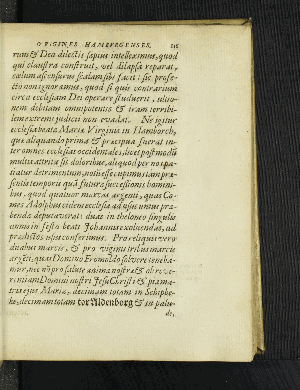 ORIGINES HAMBURGENSES. 215
rum & Dea dilectis sæpius intelleximus, quod
qui claustra construit, vel dilapsa reparat,
cœlum ascensurus scalam sibi facit: sic profe-
cto non ignoramus, quod si quis contrarium
circa ecclesiam Dei operari studuerit, ultio-
nem debitam omnipotentis & iram terribi-
lem extremi judicii non evadat. Ne igitur
ecclesia beatæ Mariæ Virginis in Hamborch,
quæ aliquando prima & præcipua fuerat in-
ter omnes ecclesias occidentales, licet postmodũ
multis attrita sit doloribus, aliquod per nos pa-
tiatur detrimentum, notũ esse cupimus tam præ-
sentis temporis quã futura successionis homini-
bus, quod quatuor marcas argenti, quas Co-
mes Adolphus eidem ecclesiæ ad usus unius præ-
benda deputaverat: duas in theloneo singulis
annis in festo beati Johannis exolvendas, ad
prædictos usus conferimus. Pro reliquis vero
duabus marcis, & pro viginti tribus marcis
argēti, quas Domino Fromoldo solvere teneba-
mur, nec nõ pro salute animæ nostræ & ob reve-
rentiam Domini nostri Jesu Christi & piæ ma-
tris ejus Mariæ, decimam totam in Schipbe-
ke, decimam totam tor Aldenborg & in palu-
de,